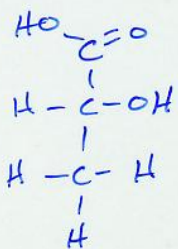 HO
C=O
H-C-OH
H-C-H
H